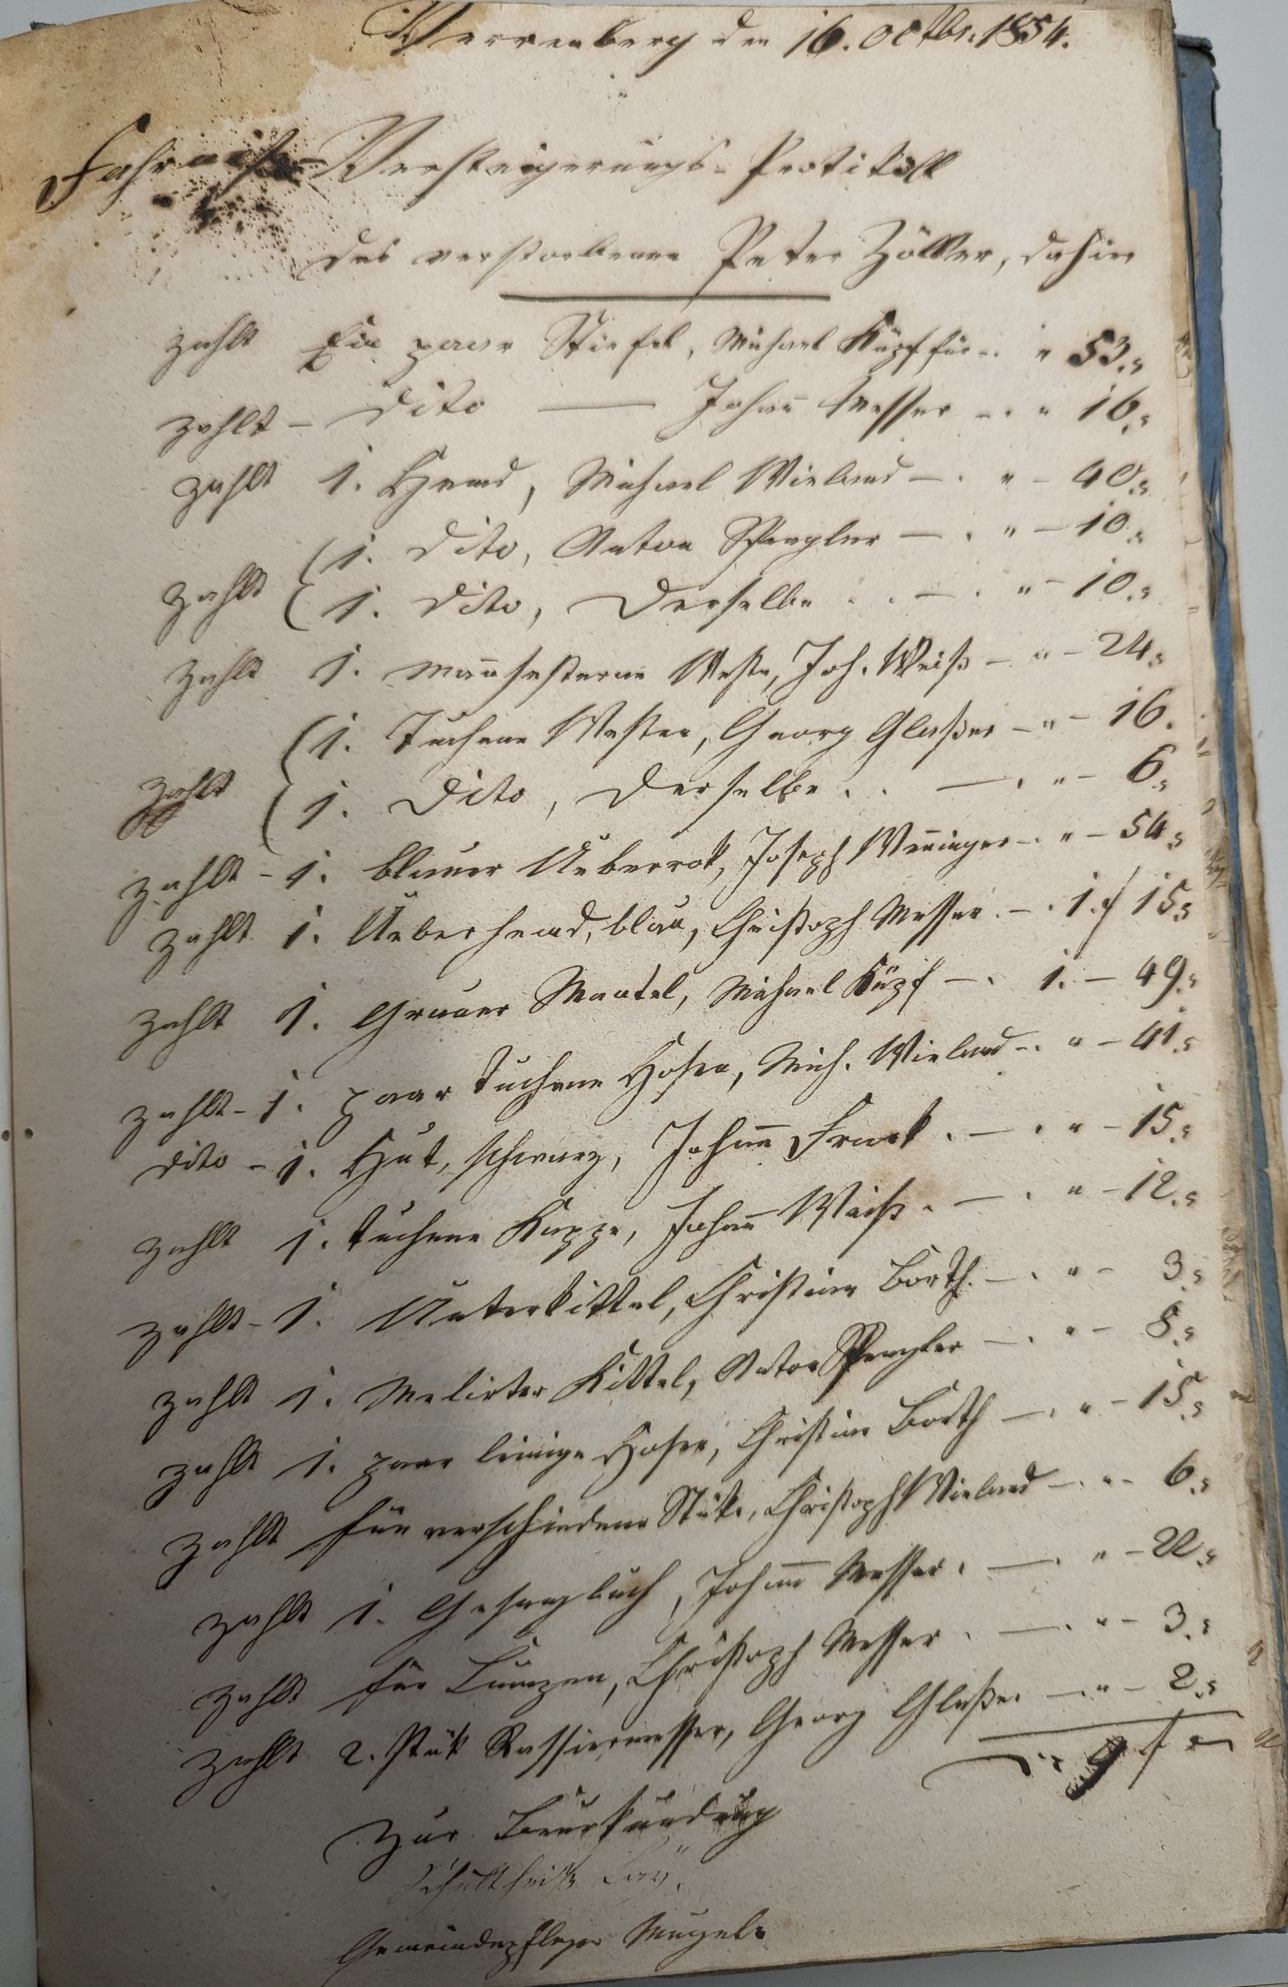 Verrenberg den 16. Octbr. 1854.
Fahrniß-Versteigerungs-Protikoll
des verstorbenen Peter Zöller, dahier
zahlt Ein paar Stiefel, Michael Küpf für . . " 53.
zahlt - dito — Johann Messer - . " 16.
zahlt 1. Hemd, Michael Wieland - . " - 40.
1. dito, Anton Spengler - . " - 10.
zahlt 1. dito, Derselbe . . - . " - 10.
zahlt 1. Weste, Joh. Weiß - " - 24.
1. Tuchene Westen, Georg Glaßer - " - 16.
zahlt 1. dito, Derselbe . . — . " - 6.
zahlt - 1. blauer Ueberrok, Joseph Wenninger - . " - 54.
zahlt 1. Ueberhemd, blau, Christoph Messer . - . 1. f 15.
zahlt 1. Grauer Mantel, Michael Küpf - . 1. - 49.
zahlt - 1. paar Tuchene Hosen, Mich. Wieland - . " - 41.
dito - 1. Hut, schwarz, Johann Frank . - . " - 15.
zahlt 1. tuchene Kappe, Johann Weiß . - . " - 12.
zahlt - 1. Unterkittel, Christian Borth. - . " - 3.
zahlt 1. Melirter Kittel, Anton Spengler - . " - 8.
zahlt 1. paar leinige Hosen, Christian Borth - . " - 15.
zahlt für verschiedene Stüke, Christoph Wieland - . " - 6.
zahlt 1. Gesangbuch, Johann Messer . - . " - 22.
zahlt für Lumpen, Christoph Messer . - . " - 3.
zahlt 2. Stük Rassiermesser, Georg Glaßer - . " - 2.
9 f
Zur Beurkundung
Schultheiß
Gemeindepfleger Mugele